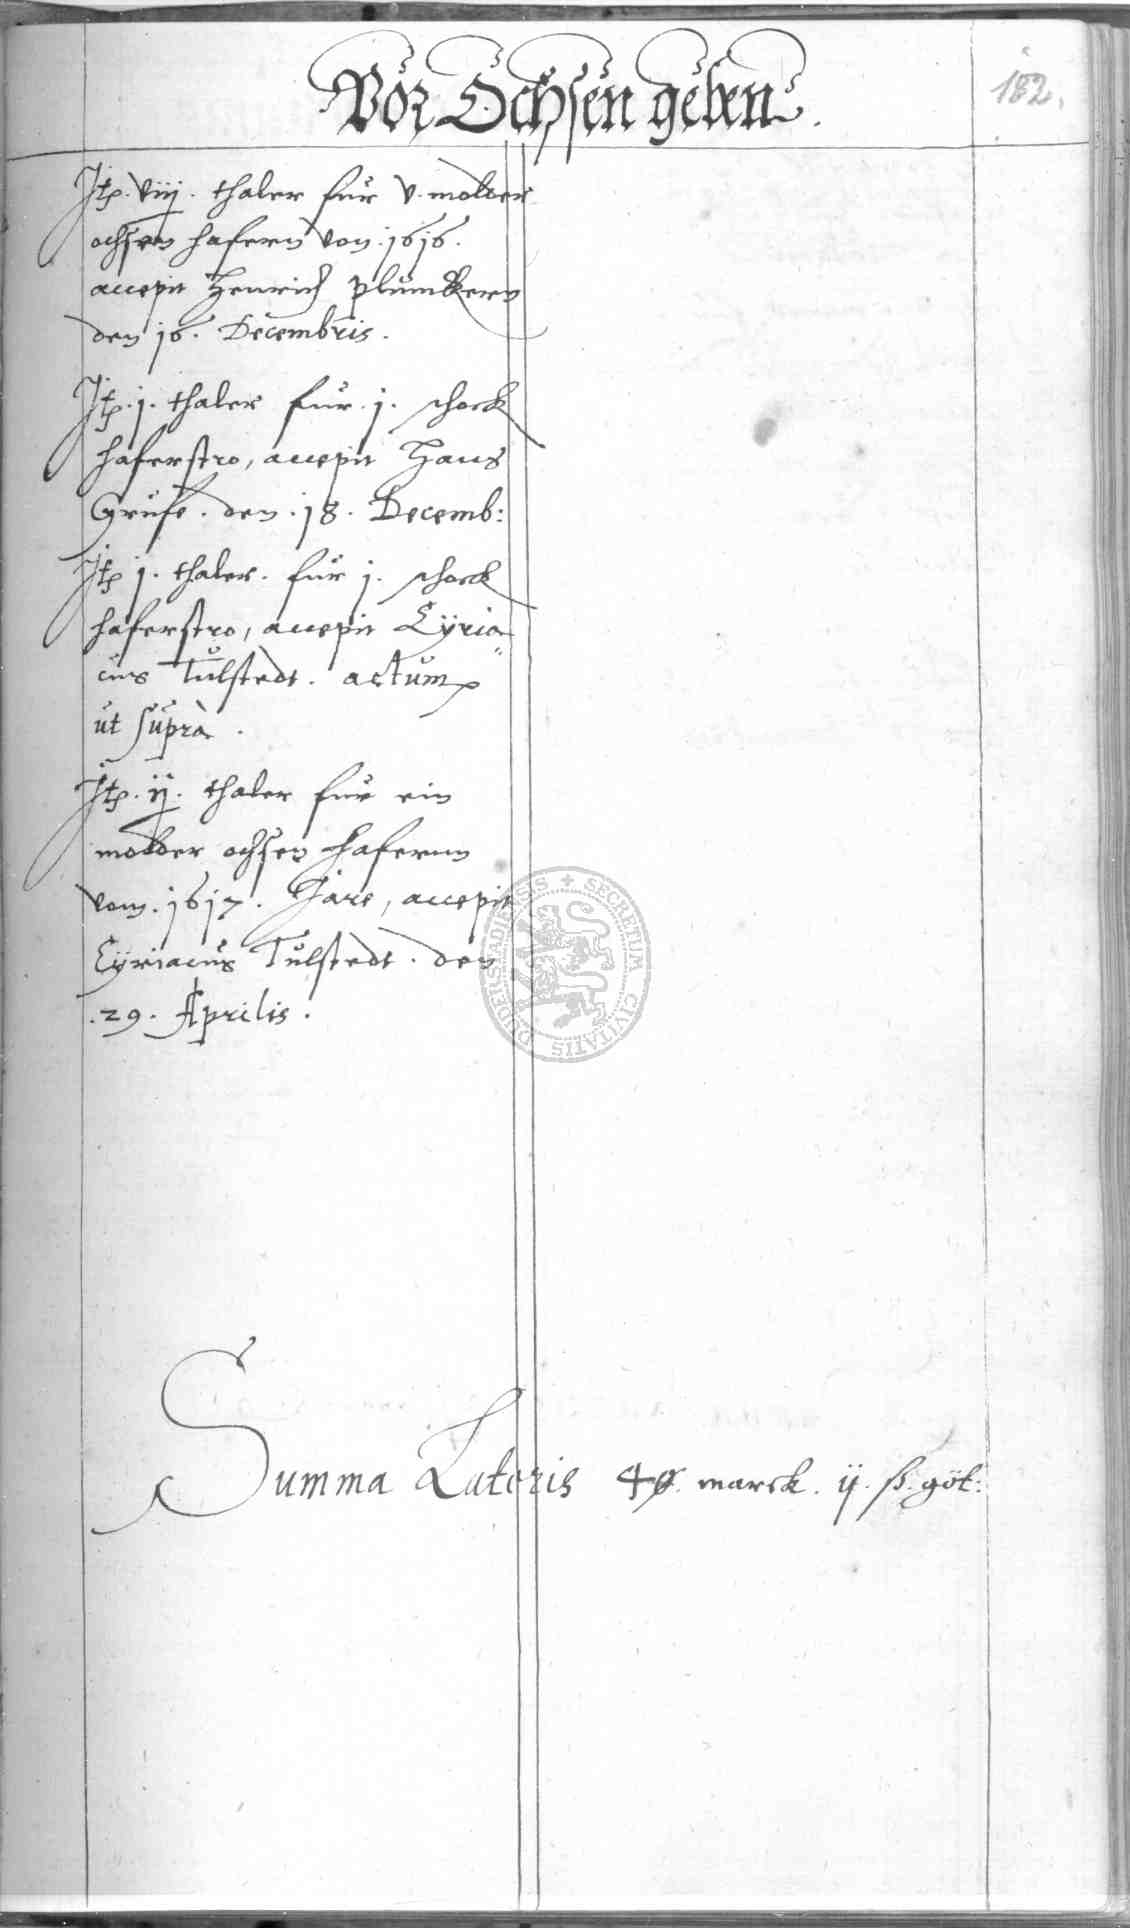 Vor Ochsen geben.
182.
Itp. viij. thaler fur v. molder
ochsen hafern von .1616.
accepit Henrich Plumckern
den 16. Decembris.
Itp. j. thaler fur .j. schock
haferstro, accepit Hans
Grüse. den .18. Decemb:
Itp j. thaler. für j. schock
haferstro, accepit Cÿria=
cus Tülstedt. actum
ut suprà.
Itp. ij. thaler fur ein
molder ochsen hafernn
vom .1617. Jare, accepit
Cÿriacus Tülstedt. den
.29. Aprilis.
SECRETUM CIVITATIS DUDERSTADIENSIS
Summa Lateris marck. ij. ß. göt: